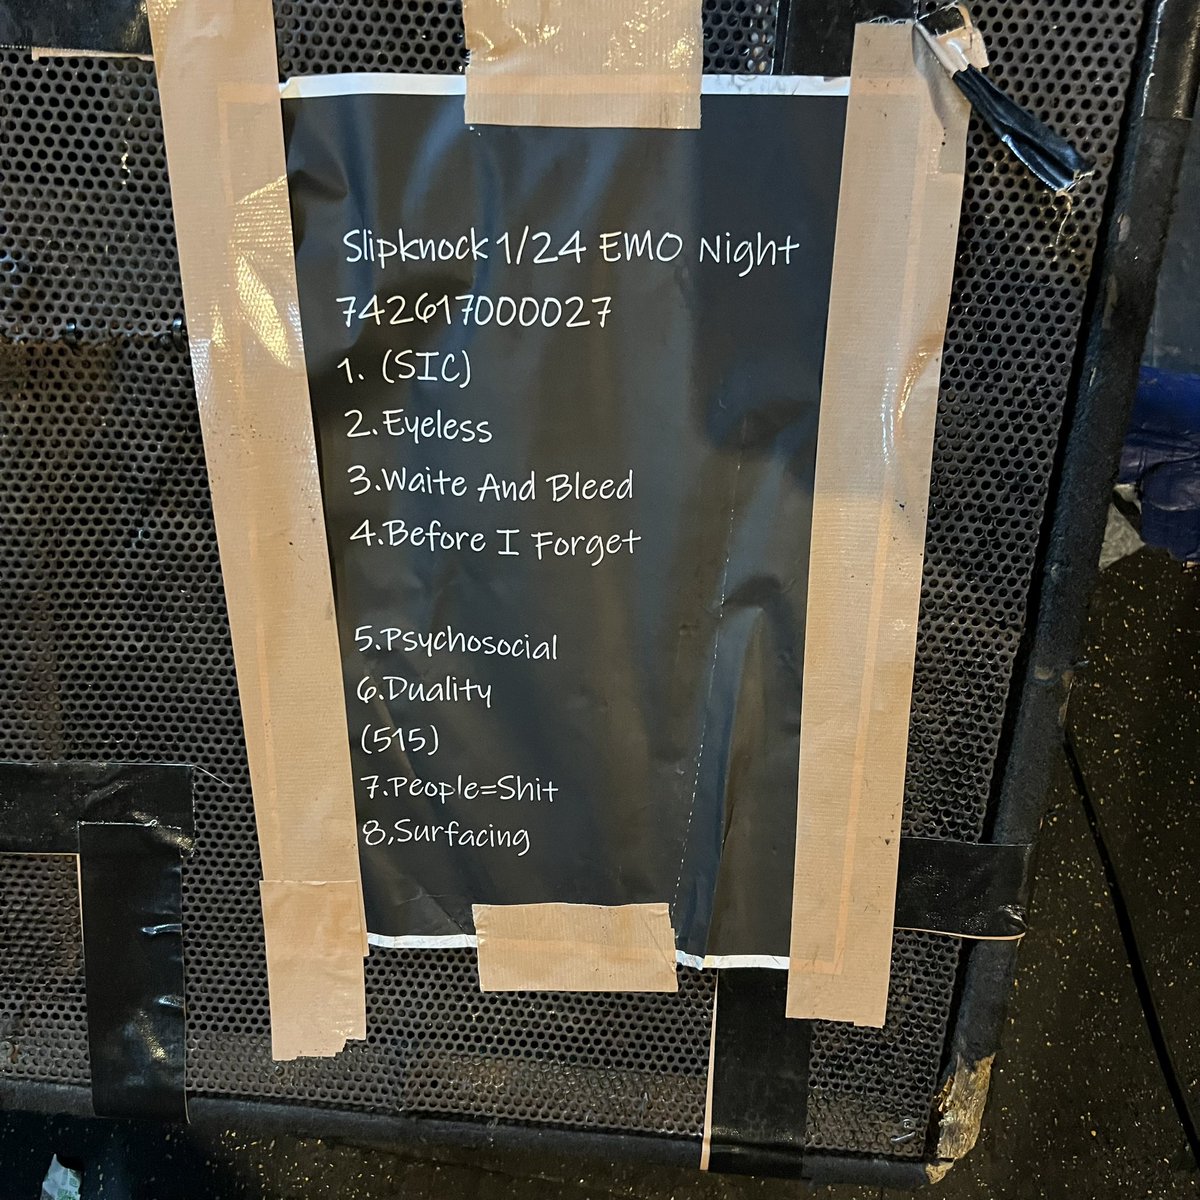 Slipknock 1/24 EMO Night
742617000027
1. (SIC)
2.Eyeless
3.Waite And Bleed
4.Before I Forget
5.Psychosocial
6.Duality
(515)
7.People=Shit
8,Surfacing